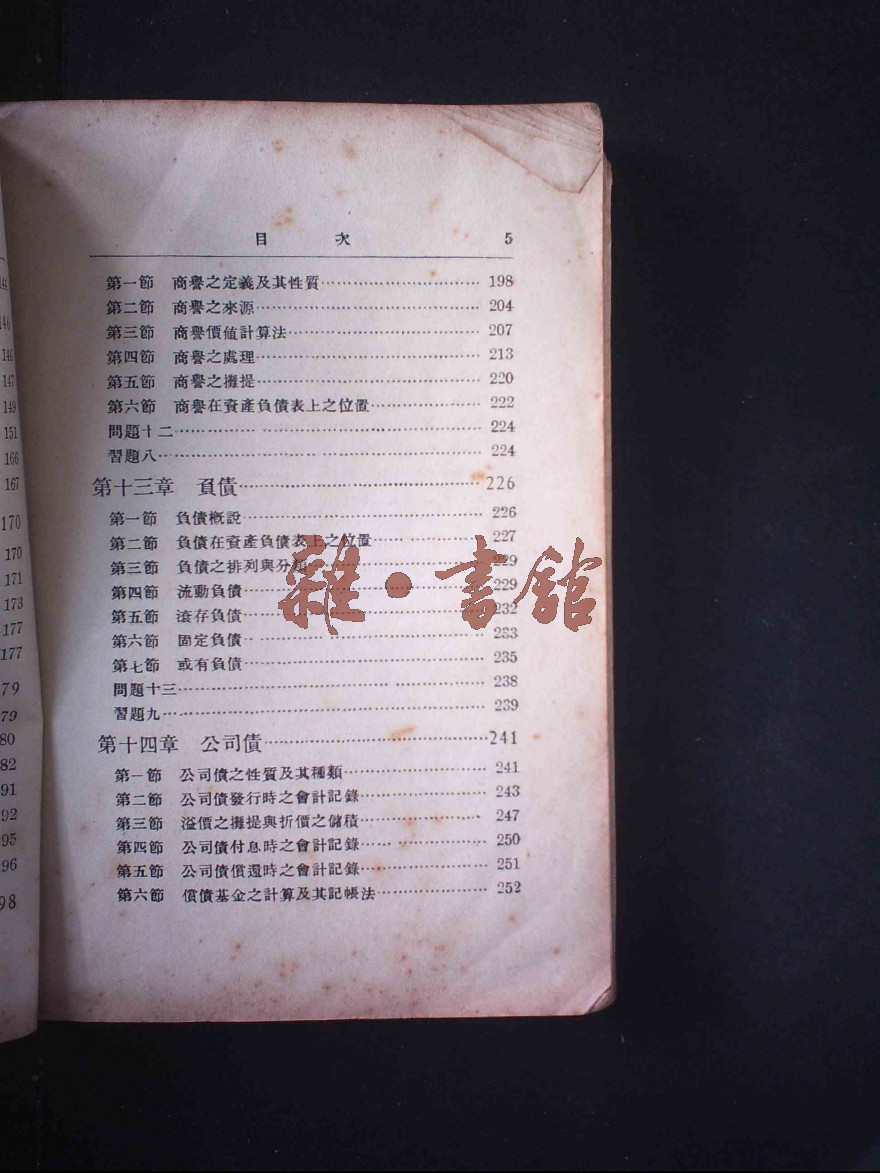 144
146
146
147
149
151
166
167
170
170
171
173
177
177
79
79
80
82
91
92
95
96
98
目 次 5
第一節 商譽之定義及其性質 198
第二節 商譽之來源 204
第三節 商譽價値計算法 207
第四節 商譽之處理 213
第五節 商譽之攤提 220
第六節 商譽在資產負債表上之位置 222
問題十二 224
習題八 224
第十三章 負債 226
第一節 負債槪說 226
第二節 負債在資產負債表上之位置 227
第三節 負債之排列與分類 229
第四節 流動負債 229
第五節 滾存負債 232
第六節 固定負債 233
第七節 或有負債 235
問題十三 238
習題九 239
第十四章 公司債 241
第一節 公司債之性質及其種類 241
第二節 公司債發行時之會計記錄 243
第三節 溢價之攤提與折價之儲積 247
第四節 公司債付息時之會計記錄 250
第五節 公司債償還時之會計記錄 251
第六節 償債基金之計算及其記帳法 252
雜·書館